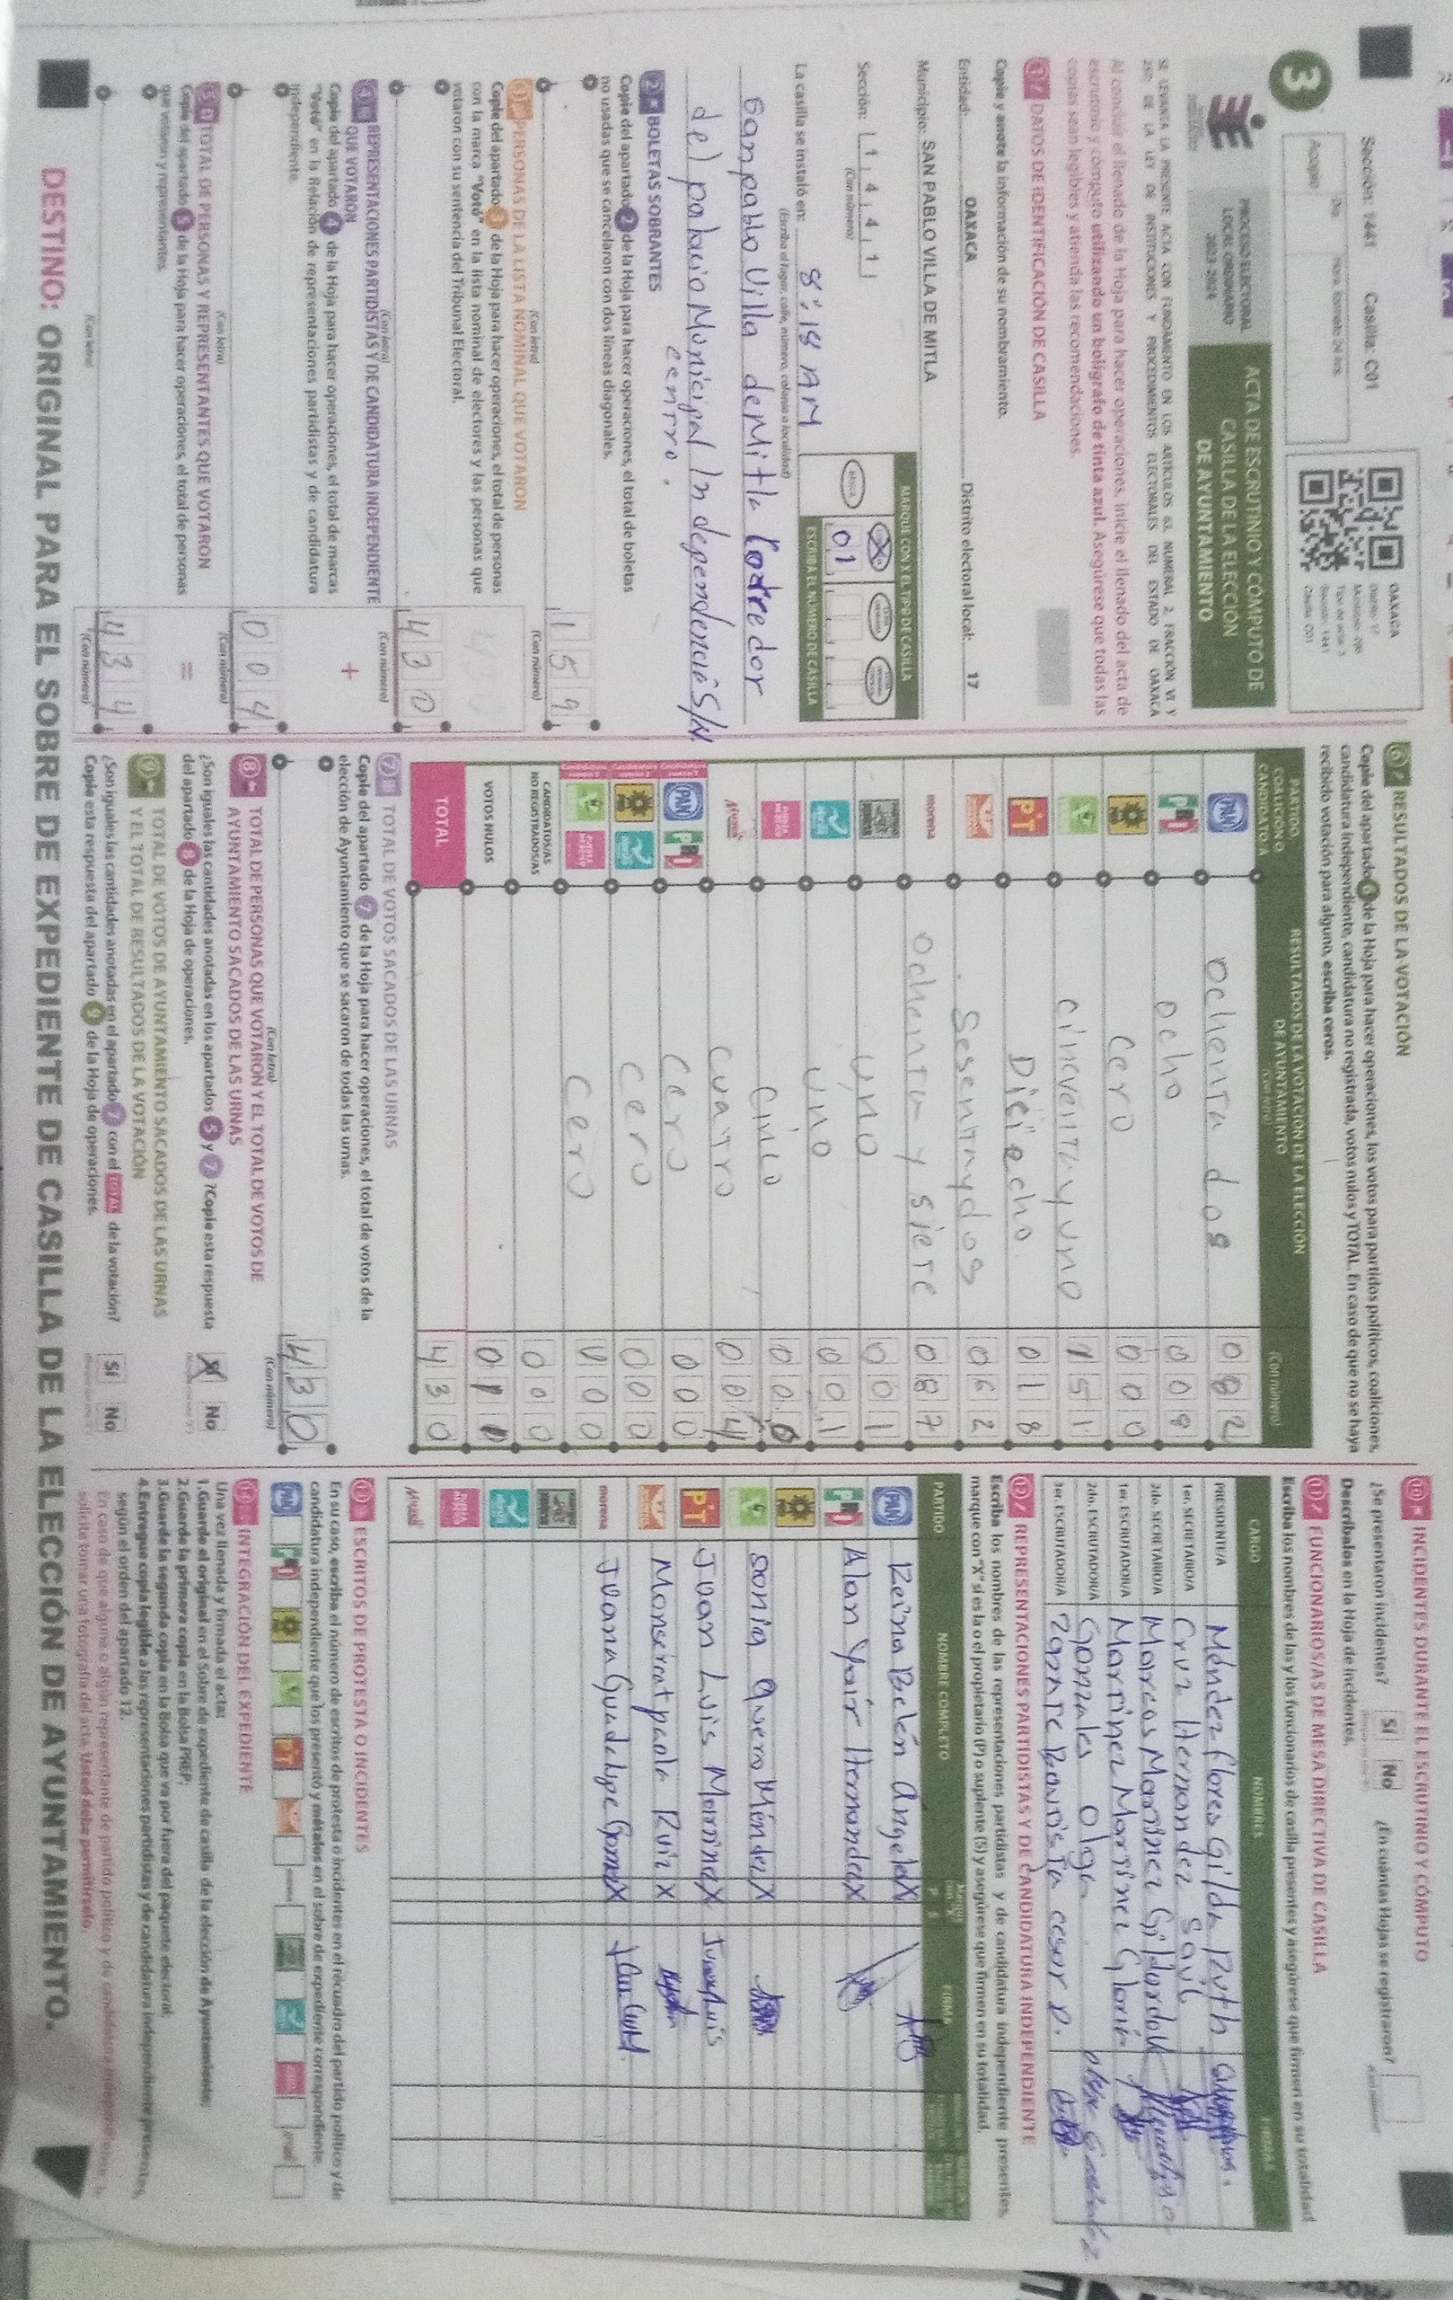 Sección: 1441 Casilla: C01
Acopio
Día
Hora. Formato 24 hrs.
OAXACA
Distrito: 17
Tipo de acta: 3
Sección: 1441
Casilla: C01
3
PROCESO ELECTORAL
LOCAL ORDINARIO
2023-2024
ACTA DE ESCRUTINIO Y CÓMPUTO DE
CASILLA DE LA ELECCIÓN
DE AYUNTAMIENTO
SE LEVANTA LA PRESENTE ACTA CON FUNDAMENTO EN LOS ARTÍCULOS 63, NUMERAL 2, FRACCIÓN VI Y
250 DE LA LEY DE INSTITUCIONES Y PROCEDIMIENTOS ELECTORALES DEL ESTADO DE OAXACA
Al concluir el llenado de la Hoja para hacer operaciones, inicie el llenado del acta de
escrutinio y cómputo utilizando un bolígrafo de tinta azul. Asegúrese que todas las
copias sean legibles y atienda las recomendaciones.
1 DATOS DE IDENTIFICACIÓN DE CASILLA
Copie y anote la información de su nombramiento.
Entidad: OAXACA Distrito electoral local: 17
Municipio: SAN PABLO VILLA DE MITLA
Sección: 1 4 4 1
(Con número)
MARQUE CON X EL TIPO DE CASILLA
BÁSICA
01
ESCRIBA EL NÚMERO DE CASILLA
La casilla se instaló en: 8:18 AM
(Escriba el lugar, calle, número, colonia o localidad)
San pablo Villa de Mitla Corredor
del palacio Municipal Independencia S/N
centro.
2 BOLETAS SOBRANTES
Copie del apartado 2 de la Hoja para hacer operaciones, el total de boletas
no usadas que se cancelaron con dos líneas diagonales.
(Con letra)
159
(Con número)
3 PERSONAS DE LA LISTA NOMINAL QUE VOTARON
Copie del apartado 3 de la Hoja para hacer operaciones, el total de personas
con la marca "Votó" en la lista nominal de electores y las personas que
votaron con su sentencia del Tribunal Electoral.
(Con letra)
430
(Con número)
4 REPRESENTACIONES PARTIDISTAS Y DE CANDIDATURA INDEPENDIENTE
QUE VOTARON
+
Copie del apartado 4 de la Hoja para hacer operaciones, el total de marcas
"Votó" en la Relación de representaciones partidistas y de candidatura
independiente.
(Con letra)
004
(Con número)
5 TOTAL DE PERSONAS Y REPRESENTANTES QUE VOTARON
=
Copie del apartado 5 de la Hoja para hacer operaciones, el total de personas
que votaron y representantes.
(Con letra)
434
(Con número)
6 RESULTADOS DE LA VOTACIÓN
Copie del apartado 6 de la Hoja para hacer operaciones, los votos para partidos políticos, coaliciones,
candidatura independiente, candidatura no registrada, votos nulos y TOTAL. En caso de que no se haya
recibido votación para alguno, escriba ceros.
PARTIDO,
COALICIÓN O
CANDIDATO/A
RESULTADOS DE LA VOTACIÓN DE LA ELECCIÓN
DE AYUNTAMIENTO
(Con letra)
(Con número)
PAN ochenta dos 082
PRI ocho 008
cero 000
cincuentayuno 151
PT Dieciocho 018
Sesentaydos 062
morena ochenta y siete 087
uno 001
uno 001
cinco
cuatro 004
PAN PRI cero 000
cero 000
cero 000
CANDIDATOS/AS
NO REGISTRADOS/AS 000
VOTOS NULOS
TOTAL 430
7 TOTAL DE VOTOS SACADOS DE LAS URNAS
Copie del apartado 7 de la Hoja para hacer operaciones, el total de votos de la
elección de Ayuntamiento que se sacaron de todas las urnas.
(Con letra)
430
(Con número)
8 TOTAL DE PERSONAS QUE VOTARON Y EL TOTAL DE VOTOS DE
AYUNTAMIENTO SACADOS DE LAS URNAS
¿Son iguales las cantidades anotadas en los apartados 5 y 7 ? Copie esta respuesta
del apartado 8 de la Hoja de operaciones.
X No
9 TOTAL DE VOTOS DE AYUNTAMIENTO SACADOS DE LAS URNAS
Y EL TOTAL DE RESULTADOS DE LA VOTACIÓN
¿Son iguales las cantidades anotadas en el apartado 7 con el TOTAL de la votación?
Copie esta respuesta del apartado 9 de la Hoja de operaciones.
Sí No
10 INCIDENTES DURANTE EL ESCRUTINIO Y CÓMPUTO
¿Se presentaron incidentes? Sí No ¿En cuántas Hojas se registraron?
Descríbalos en la Hoja de incidentes.
11 FUNCIONARIOS/AS DE MESA DIRECTIVA DE CASILLA
Escriba los nombres de las y los funcionarios de casilla presentes y asegúrese que firmen en su totalidad.
CARGO NOMBRES FIRMAS
PRESIDENTE/A Méndez flores Gilda Ruth
1er. SECRETARIO/A Cruz Hernandez Saul
2do. SECRETARIO/A Marcos Martinez Gildardo
1er. ESCRUTADOR/A Martinez Martinez Gloria
2do. ESCRUTADOR/A Gonzales Olga
3er. ESCRUTADOR/A Zarate Bautista cesar D.
12 REPRESENTACIONES PARTIDISTAS Y DE CANDIDATURA INDEPENDIENTE
Escriba los nombres de las representaciones partidistas y de candidatura independiente presentes,
marque con "X" si es la o el propietario (P) o suplente (S) y asegúrese que firmen en su totalidad.
PARTIDO NOMBRE COMPLETO P S FIRMA
PAN Reina Belén Angeles X
PRI Alan Yair Hernandez X
Sonia Quero Méndez X
PT Juan Luis Martinez X
Monserrat paola Ruiz X
morena Juana Guadalupe Gomez X
13 ESCRITOS DE PROTESTA O INCIDENTES
En su caso, escriba el número de escritos de protesta o incidentes en el recuadro del partido político y de
candidatura independiente que los presentó y métalos en el sobre de expediente correspondiente.
14 INTEGRACIÓN DEL EXPEDIENTE
Una vez llenada y firmada el acta:
1.Guarde el original en el Sobre de expediente de casilla de la elección de Ayuntamiento;
2.Guarde la primera copia en la Bolsa PREP;
3.Guarde la segunda copia en la Bolsa que va por fuera del paquete electoral;
4.Entregue copia legible a las representaciones partidistas y de candidatura independiente presentes,
según el orden del apartado 12.
DESTINO: ORIGINAL PARA EL SOBRE DE EXPEDIENTE DE CASILLA DE LA ELECCIÓN DE AYUNTAMIENTO.